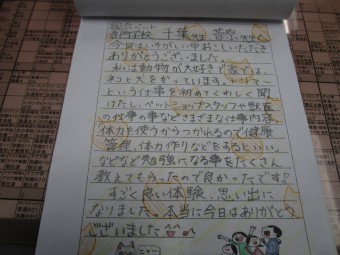 総合ペット
専門学校 千葉先生 菅原先生へ
今日はいそがしい中おこしいただき
ありがとうございました。
私は動物が大好きで家では、
ネコと犬をかっています。トリマー
という仕事を初めてくわしく聞
けたし、ペットショップスタッフや獣医
の仕事の事などさまざまな仕事内容、
体力を使うからつかれるので健康
管理、体力作りなどをするといい、
などなど勉強になる事をたくさん
教えてもらったので良かったです!!
すごく良い体験、思い出に
なりました。本当に今日はありがとう
ございました
ニャー